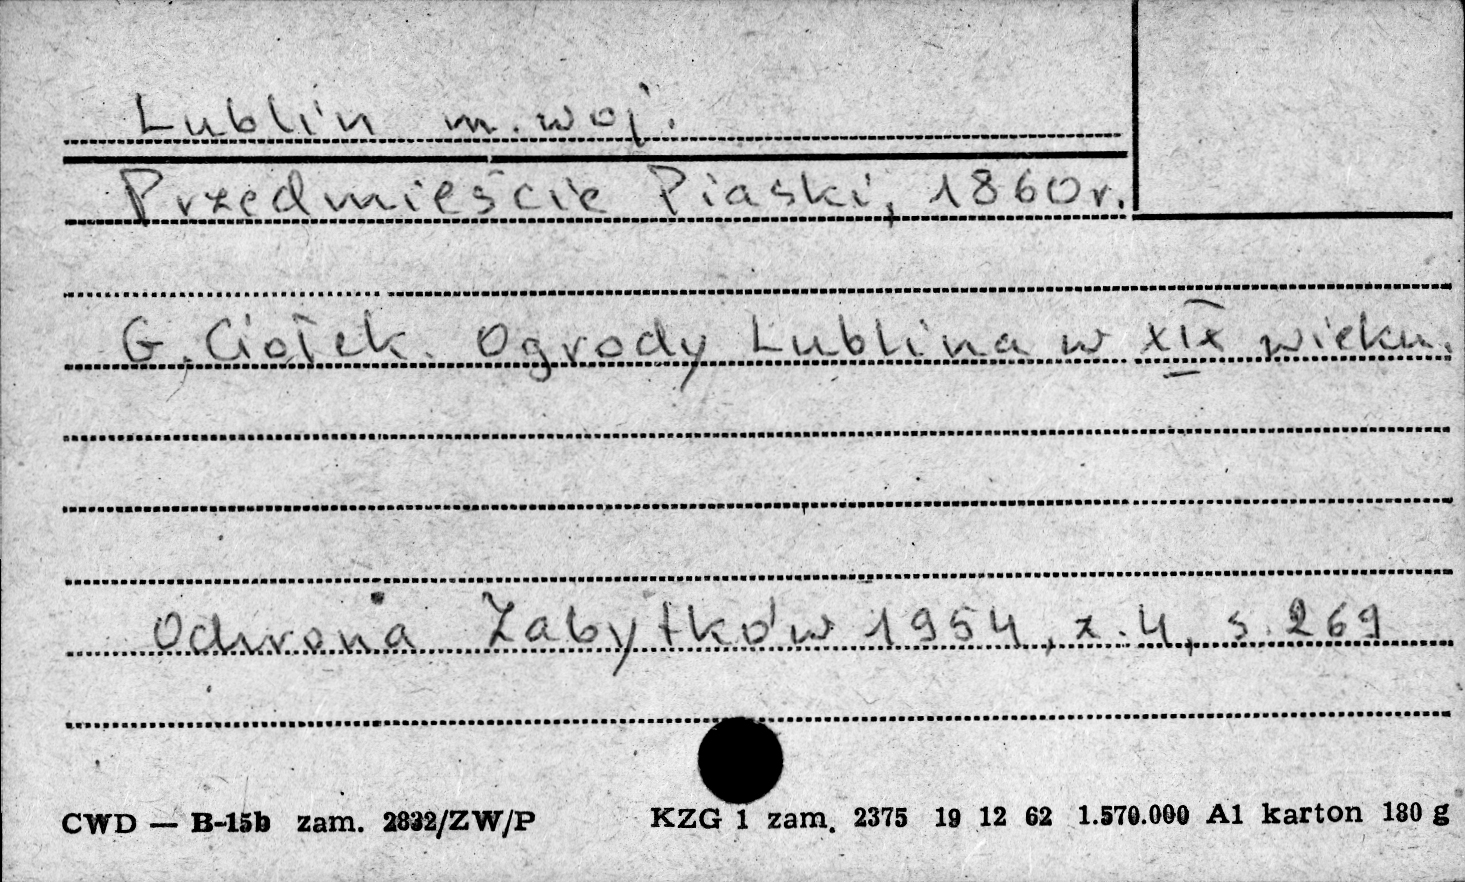 Lublin m. woj.
Przedmieście Piaski, 1860r.
G. Ciołek. Ogrody Lublina w XIX wieku.
Ochrona Zabytków 1954, z. 4, s. 269
CWD — B-15b zam. 2832/ZW/P KZG 1 zam. 2375 19 12 62 1.570.000 A1 karton 180 g